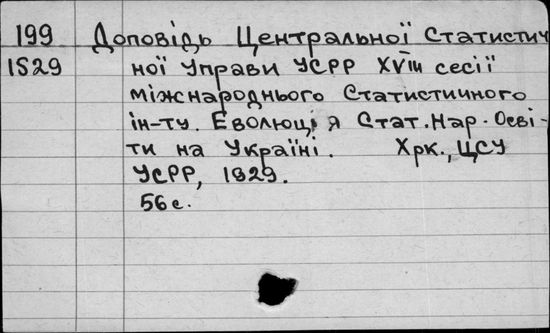 199 Доповідь Центральної Статистич
1929 ної Управи УСРР XVІІІ сесії
міжнароднього Статистичного
ін-ту. Еволюція Стат. Нар. Осві-
ти на Україні. Хрк., ЦСУ
УСРР, 1929.
56 с.